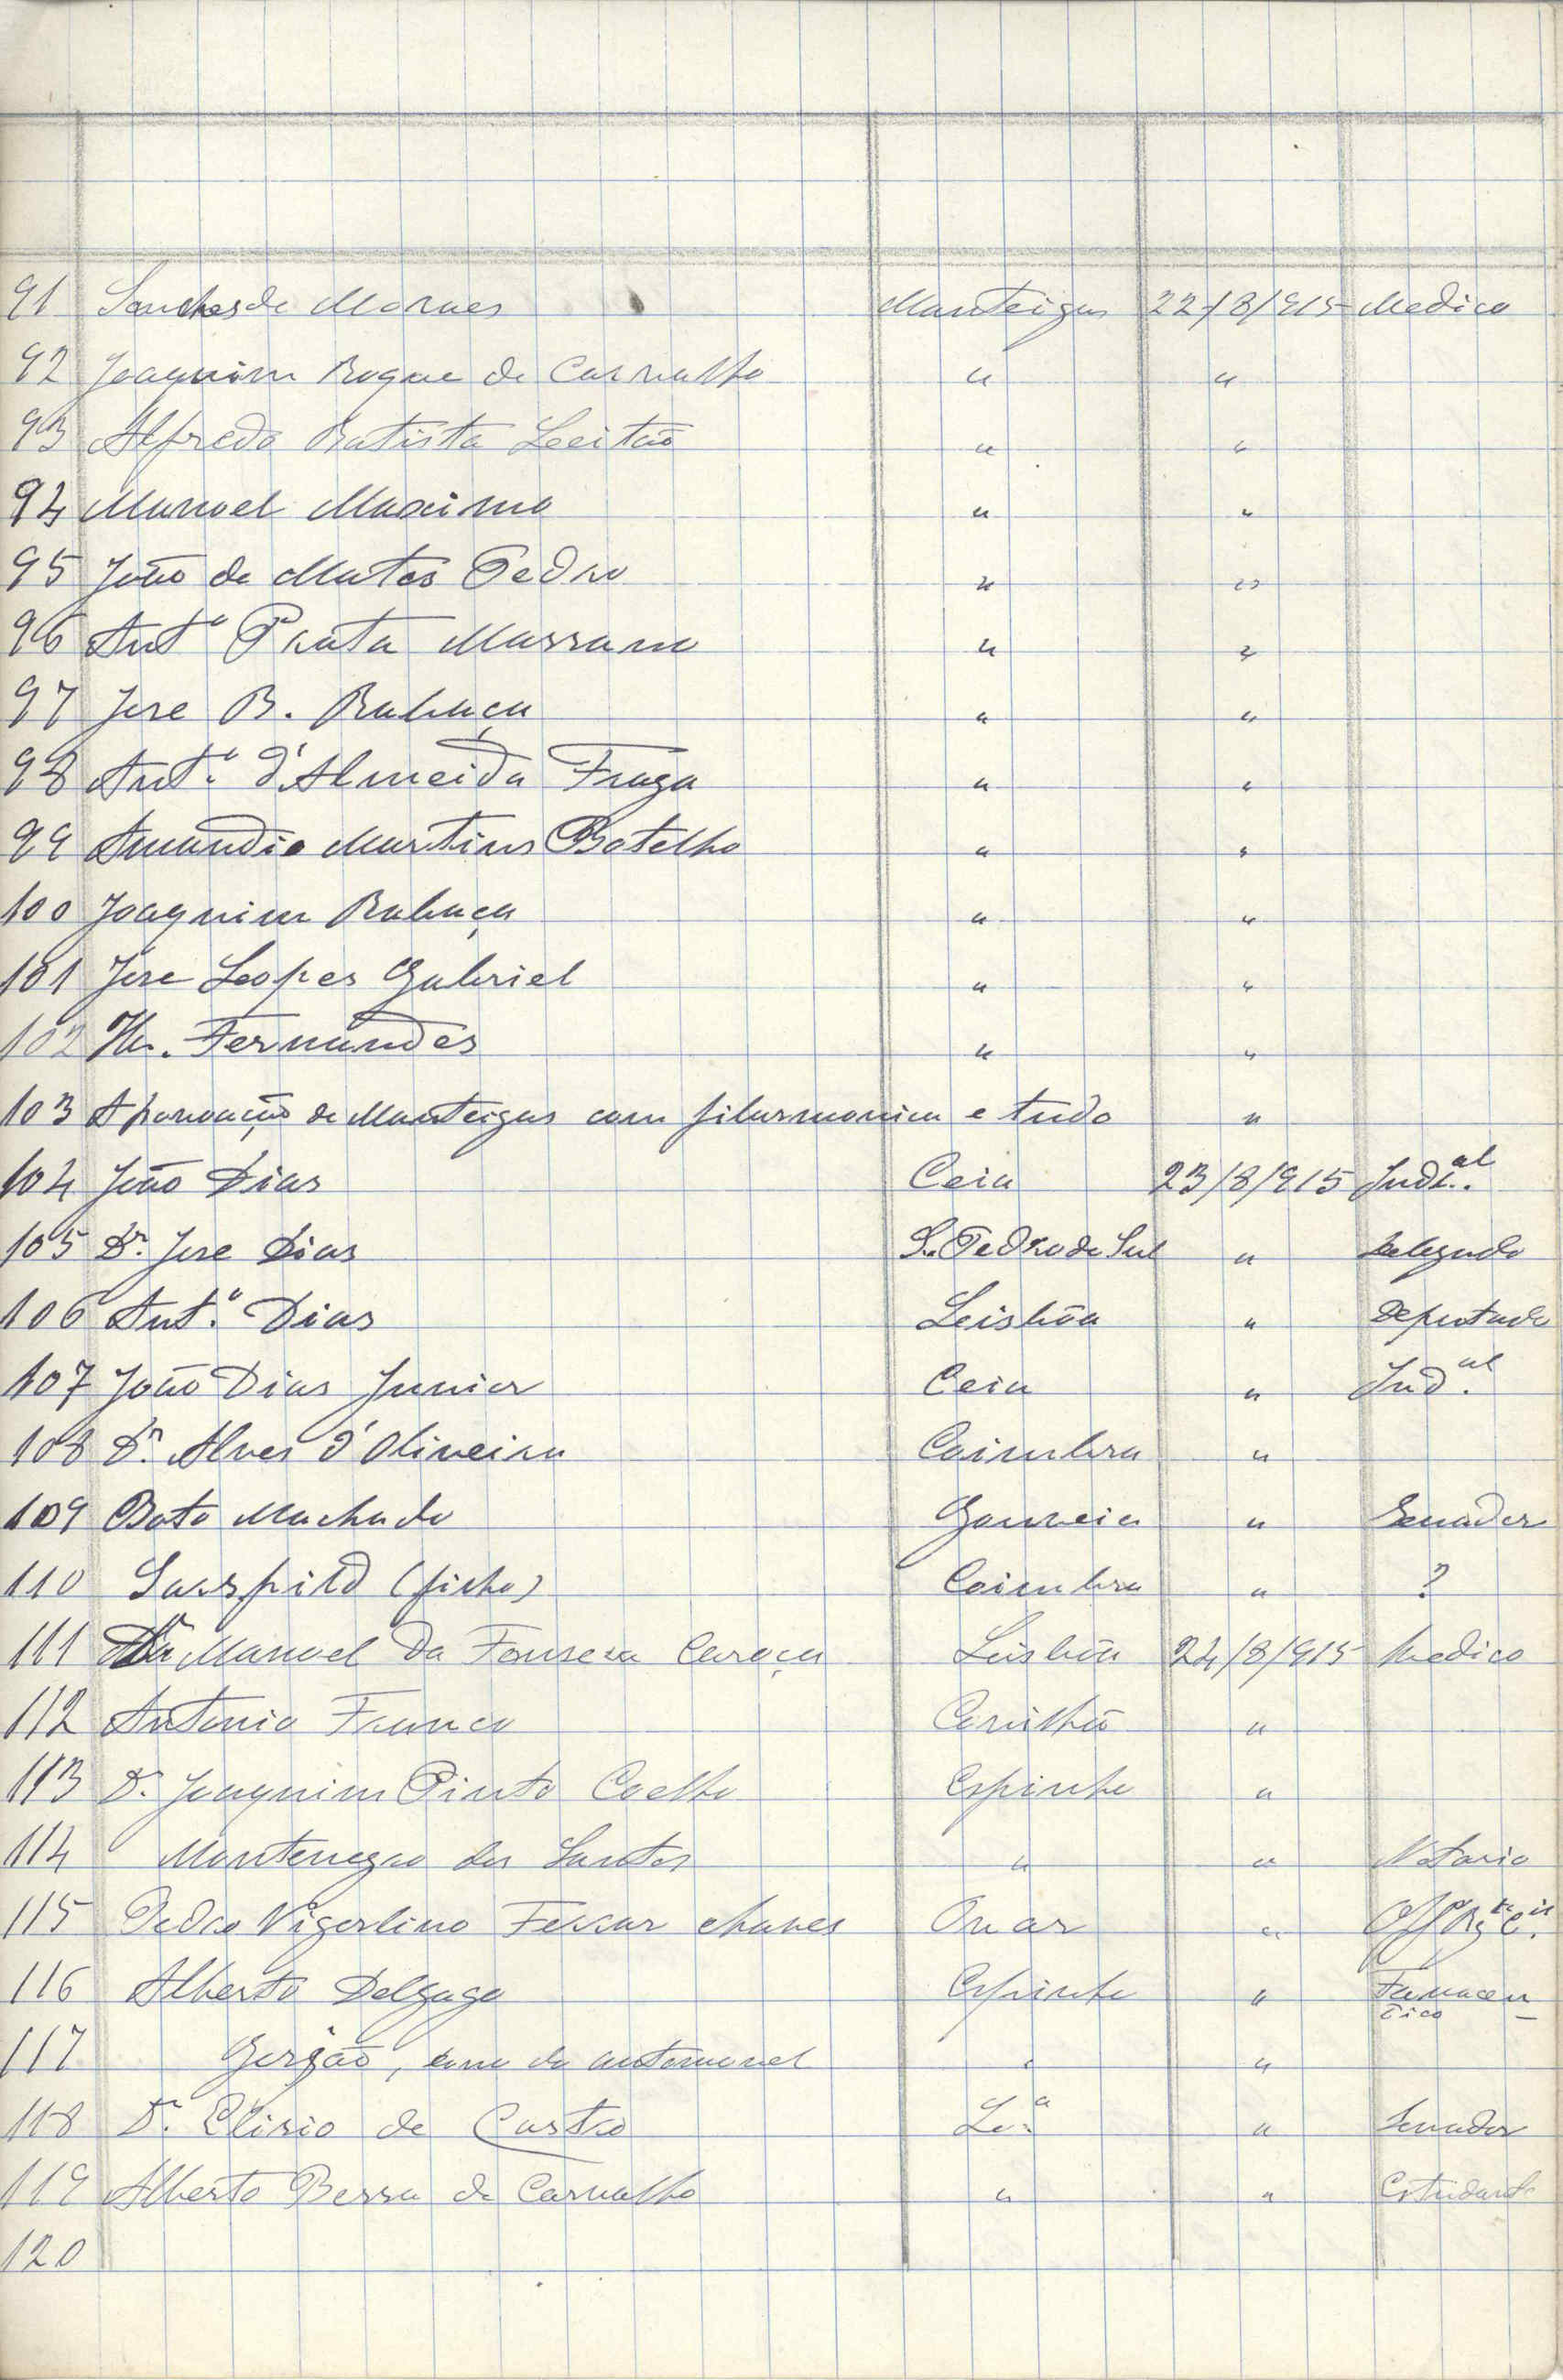 91 Sanches de Moraes Manteigas 22/8/915 Medico
92 Joaquim Roque de Carvalho " "
93 Alfredo Batista Leitão " "
94 Manoel Maximo " "
95 João de Matos Pedro " "
96 Antº Prata Massano " "
97 Jose B. Rabaça " "
98 Ant.º d'Almeida Fraga " "
99 Amandio Martins Botelho " "
100 Joaquim Rabaça " "
101 Jose Lopes Gabriel " "
102 Fernandes " "
103 A povoação de Manteigas com filarmonica e tudo "
104 João Dias Ceia 23/8/915 Ind.al
105 Dr. Jose Dias S. Pedro do Sul " Delegado
106 Ant.º Dias Lisbôa " Deputado
107 João Dias Junior Ceia " Ind.al
108 Dr. Alves d'Oliveira Coimbra "
109 Boto Machado Gouveia " Senador
110 (filho) Coimbra " ?
111 Dr Manoel da Fonseca Coimbra 24/8/915 Medico
112 Antonio Franco Covilhã "
113 Dr. Joaquim Pinto Coelho Espinho "
114 Montenegro dos Santos " " Notario
115 Pedro Ferrar Chaves Ovar "
116 Alberto Delgago Espinho " Farmaceu-
tico
117 dono do automovel " "
118 Dr. Elisio de Castro " Senador
119 Alberto Bessa de Carvalho " " Estudante
120